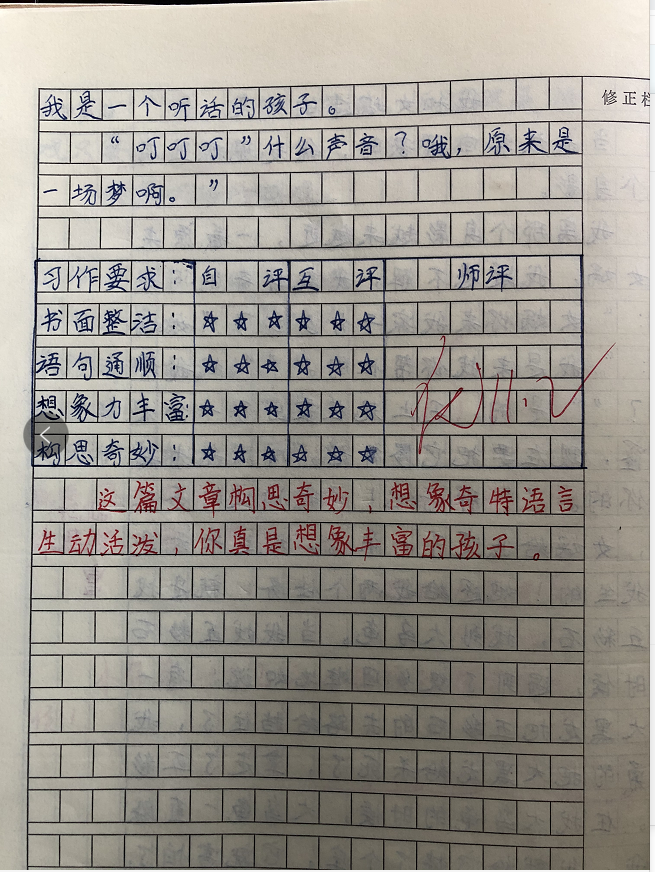 修正栏
我是一个听话的孩子。
“叮叮叮”什么声音？哦，原来是
一场梦啊。”
习作要求： 自评 互评 师评
书面整洁： ☆☆☆ ☆☆☆
语句通顺： ☆☆☆ ☆☆☆
想象力丰富： ☆☆☆ ☆☆☆
构思奇妙： ☆☆☆ ☆☆☆
这篇文章构思奇妙，想象奇特语言
生动活泼，你真是想象丰富的孩子。